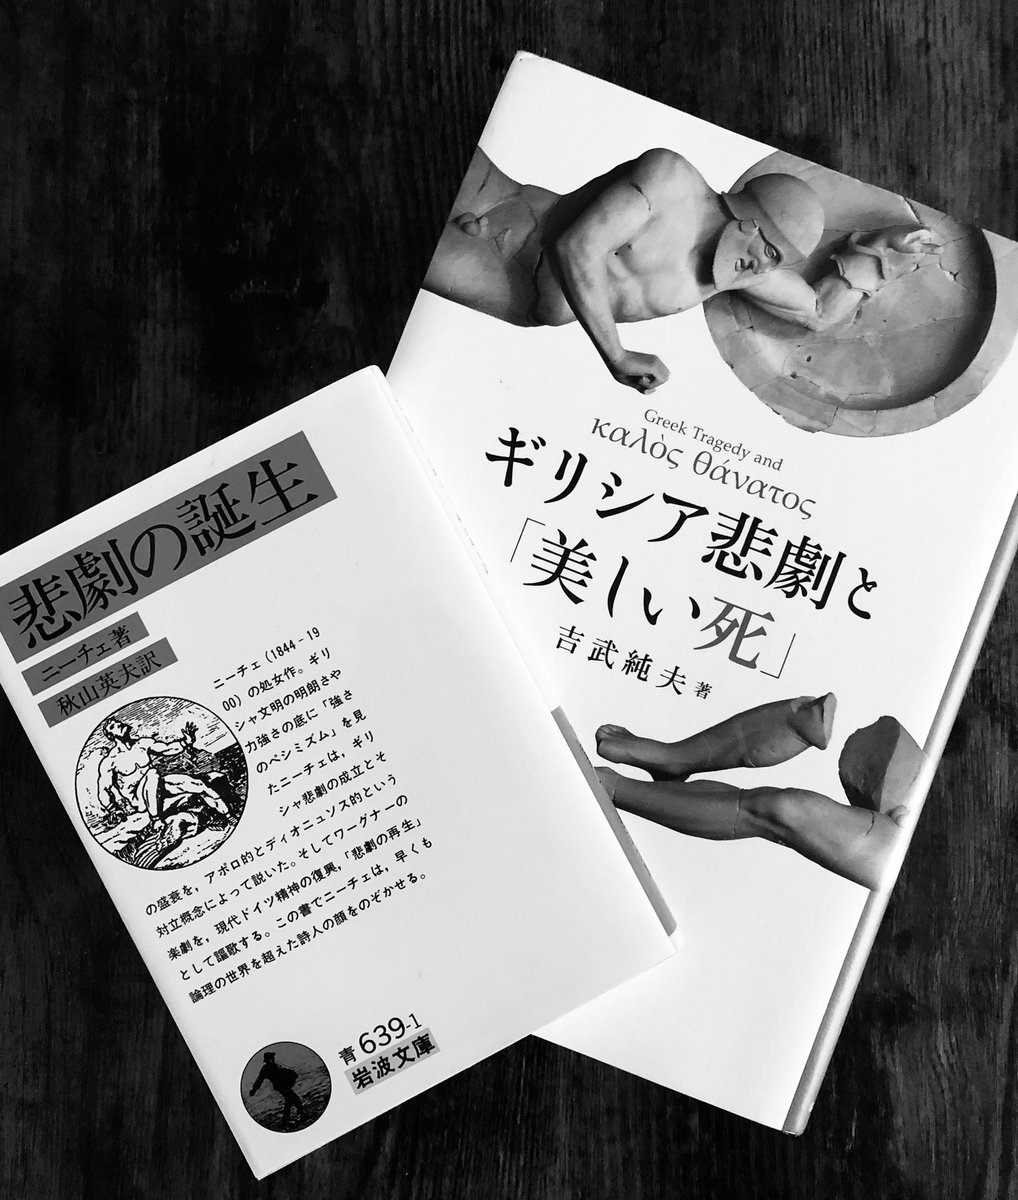 悲劇の誕生
ニーチェ著
秋山英夫訳
ニーチェ(1844-19
00)の処女作。ギリ
シャ文明の明朗さや
力強さの底に「強さ
のペシミズム」を見
たニーチェは,ギリ
シャ悲劇の成立とそ
の盛衰を,アポロ的とディオニュソス的という
対立概念によって説いた。そしてワーグナーの
楽劇を,現代ドイツ精神の復興,「悲劇の再生」
として謳歌する。この書でニーチェは,早くも
論理の世界を超えた詩人の顔をのぞかせる。
青639-1
岩波文庫
Greek Tragedy and
καλὸς θάνατος
ギリシア悲劇と
「美しい死」
吉武純夫 著